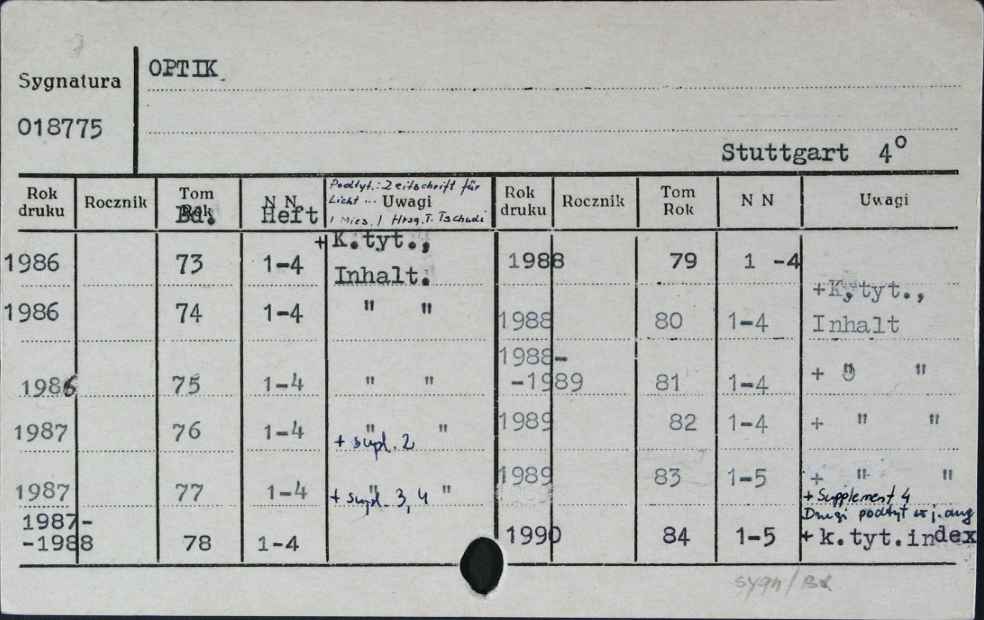 OPTIK
Sygnatura
018775
Stuttgart 4°
Rok druku Rocznik Tom Rok Bd. N N Heft Uwagi Rok druku Rocznik Tom Rok N N Uwagi
Podtyt.: Zeitschrift für
Licht ...
/ Mies. / Hrsg. T. Tschudi
1986 73 1-4 + K.tyt., Inhalt.
1986 74 1-4 " "
1986 75 1-4 " "
1987 76 1-4 " "
+ supl. 2
1987 77 1-4 " "
+ supl. 3, 4
1987-
-1988 78 1-4
1988 79 1 -4
1988 80 1-4 +K.tyt., Inhalt
1988-
-1989 81 1-4 + " "
1989 82 1-4 + " "
1989 83 1-5 + " "
+ Supplement 4
Drugi podtyt w j. ang
1990 84 1-5 + k.tyt.index